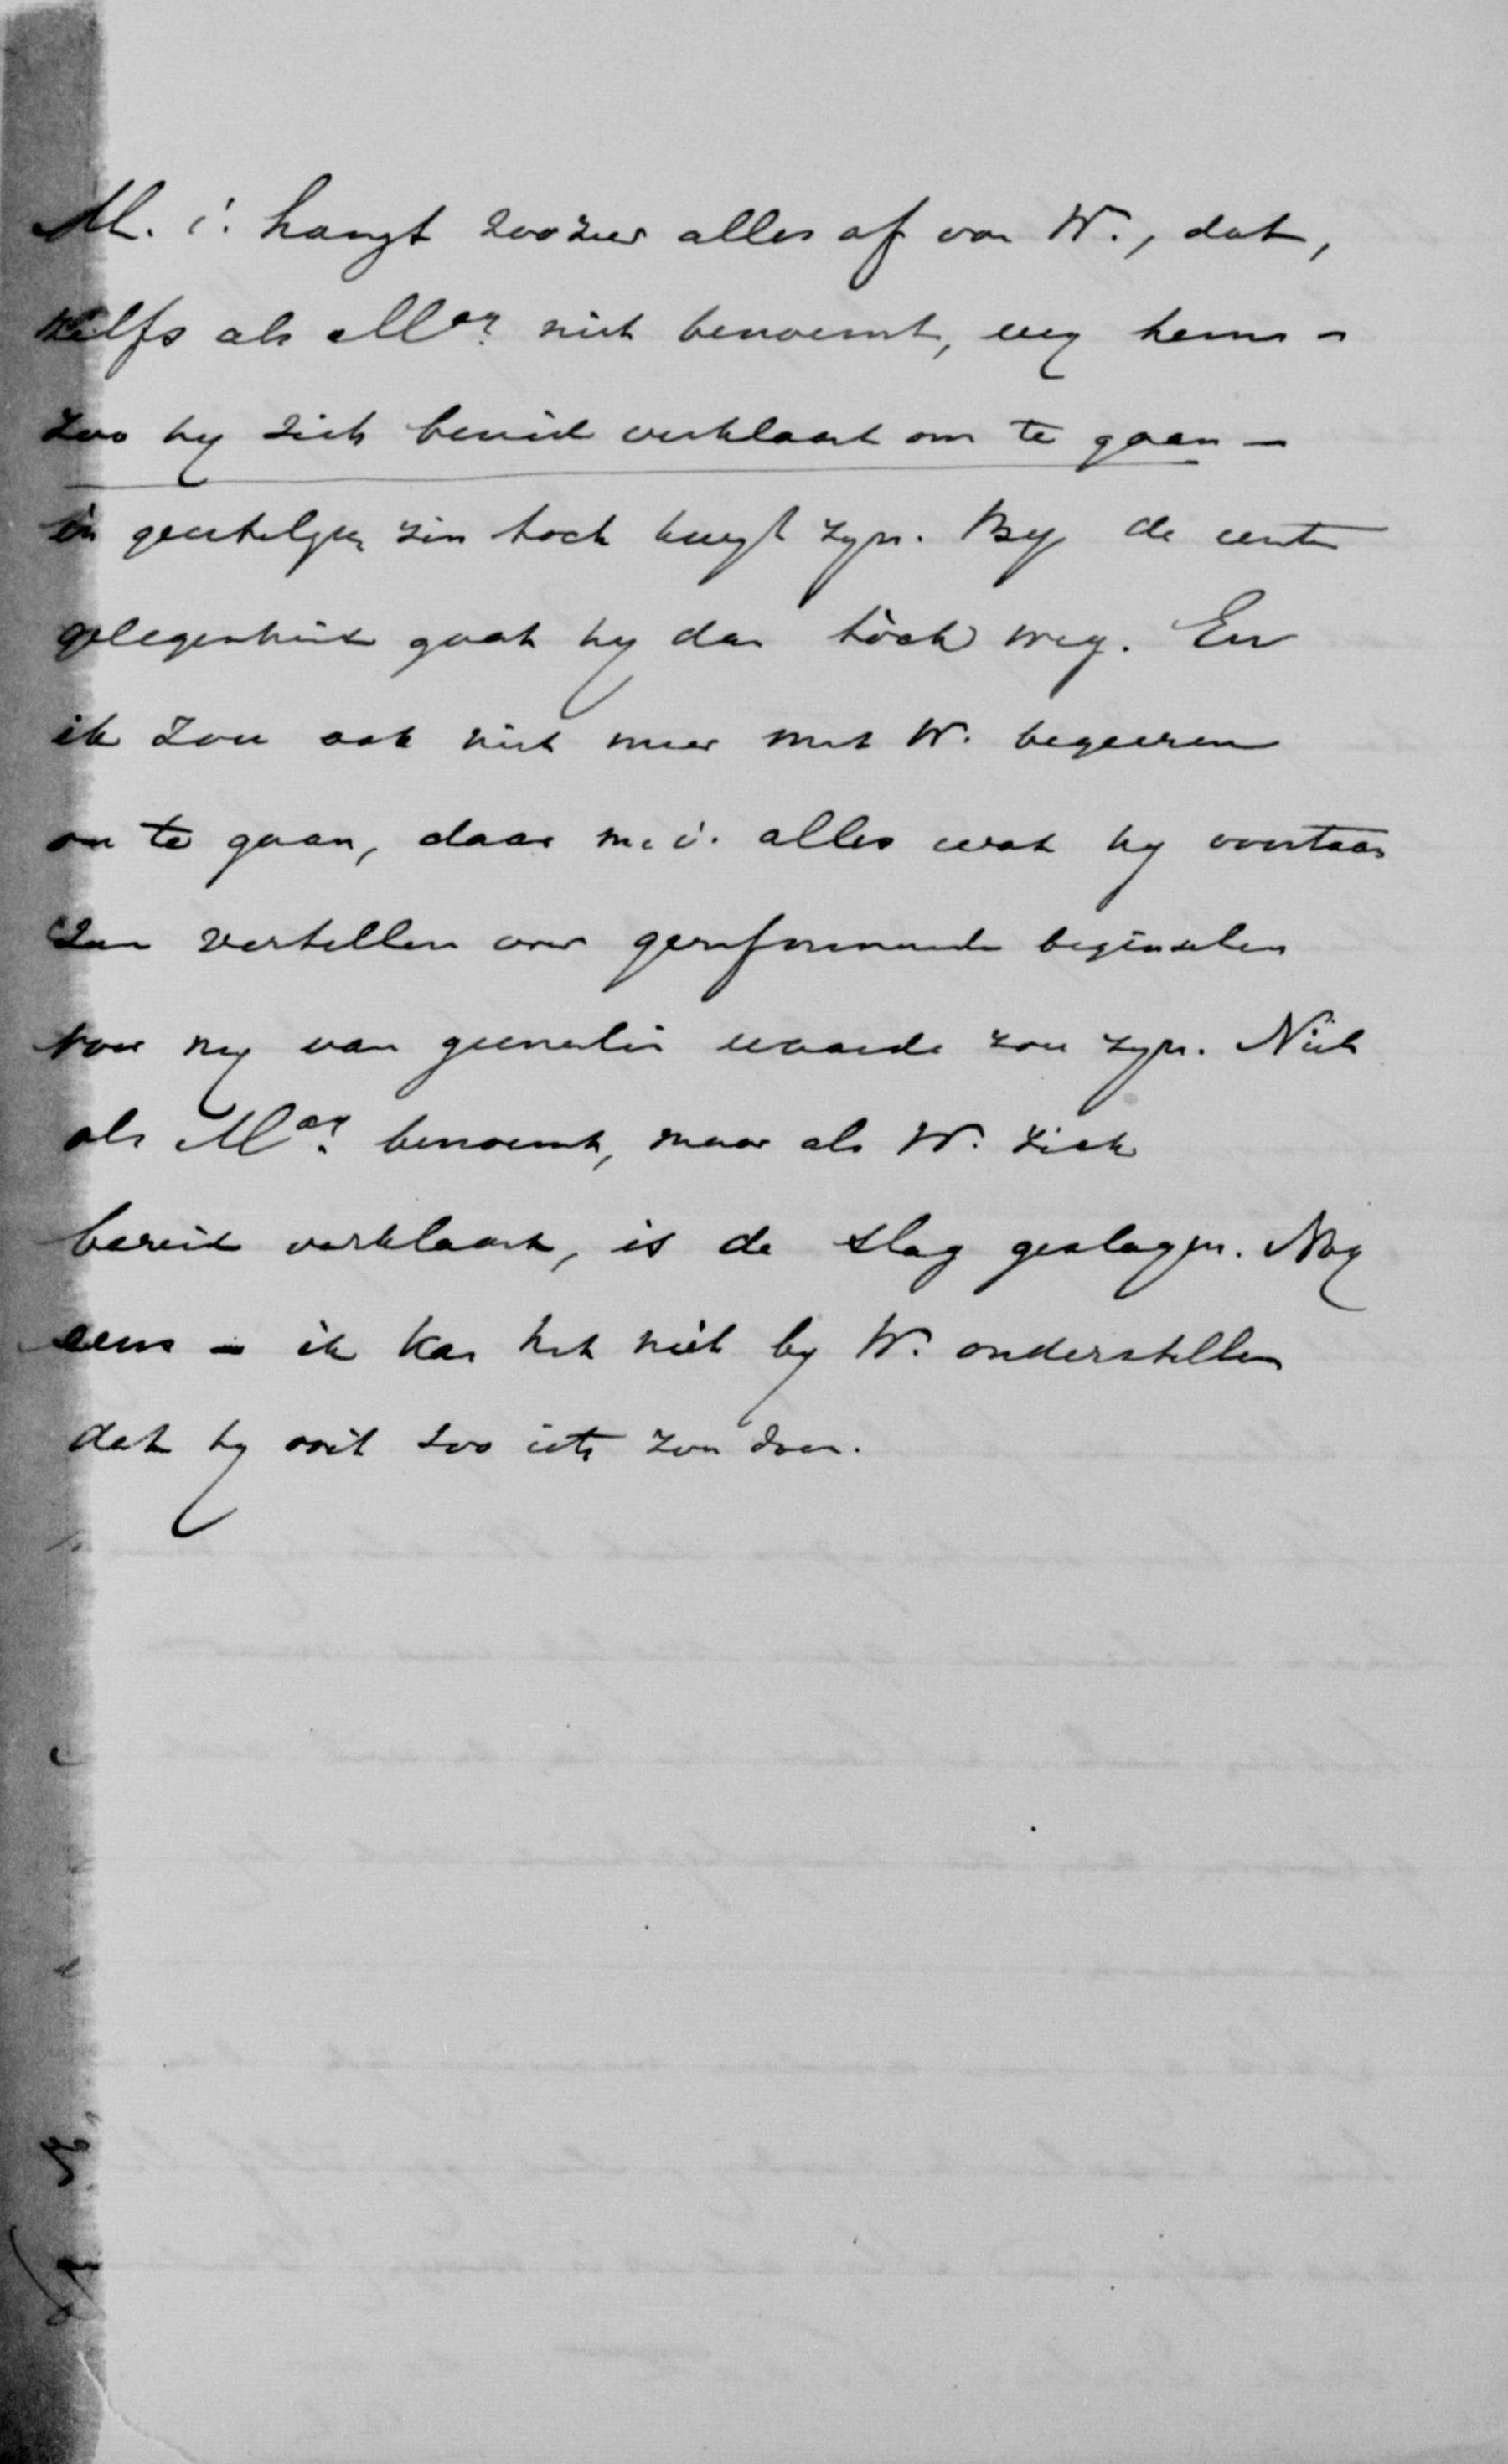 M. i. hangt zoozeer alles af van W., dat,
zelfs als Mar. niet benoemt, wy hem –
zoo hy zich bereid verklaart om te gaan –
in geestelyken zin toch kwyt zyn. By de eerste
gelegenheid gaat hy dan tòch weg. En
ik zou ook niet meer met W. begeeren
om te gaan, daar m. i. alles wat hy voortaan
zou vertellen over gereformeerde beginselen
voor my van geenerlei waarde zou zyn. Niet
als Mar. benoemt, maar als W. zich
bereid verklaart, is de slag geslagen. Nog
eens – ik kan het niet by W. onderstellen
dat hy ooit zoo iets zou doen.